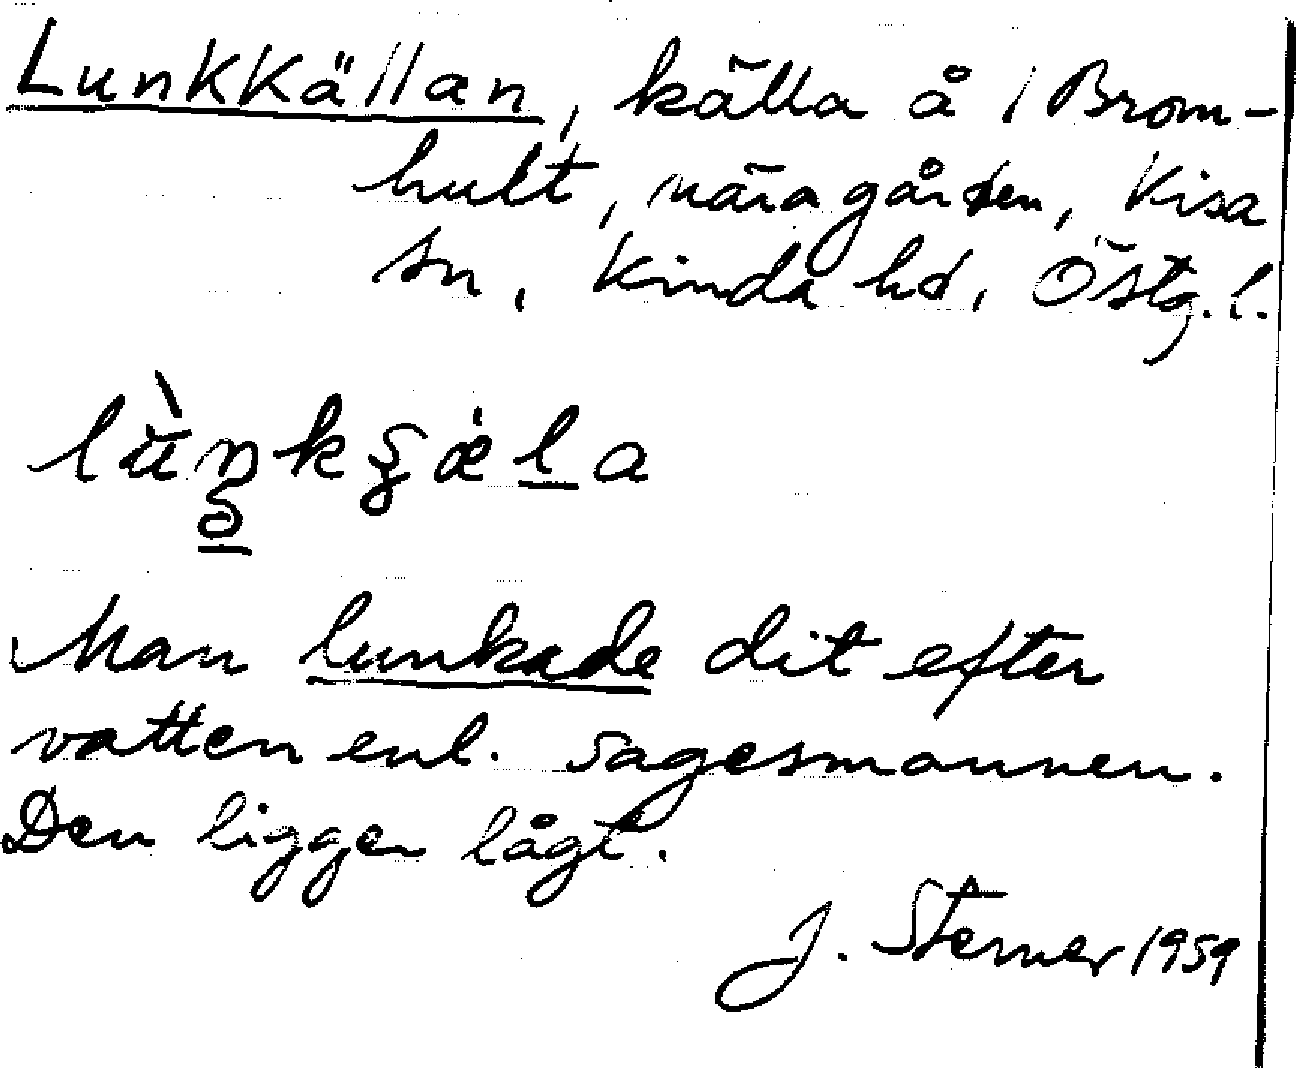 Lunkkällan, källa å Brom-
hult, nära gården, Kisa
sn, Kinda hd, Östg. l.
Man lunkade dit efter
vatten enl. sagesmannen.
Den ligger lågt.
J. Sterner 1959